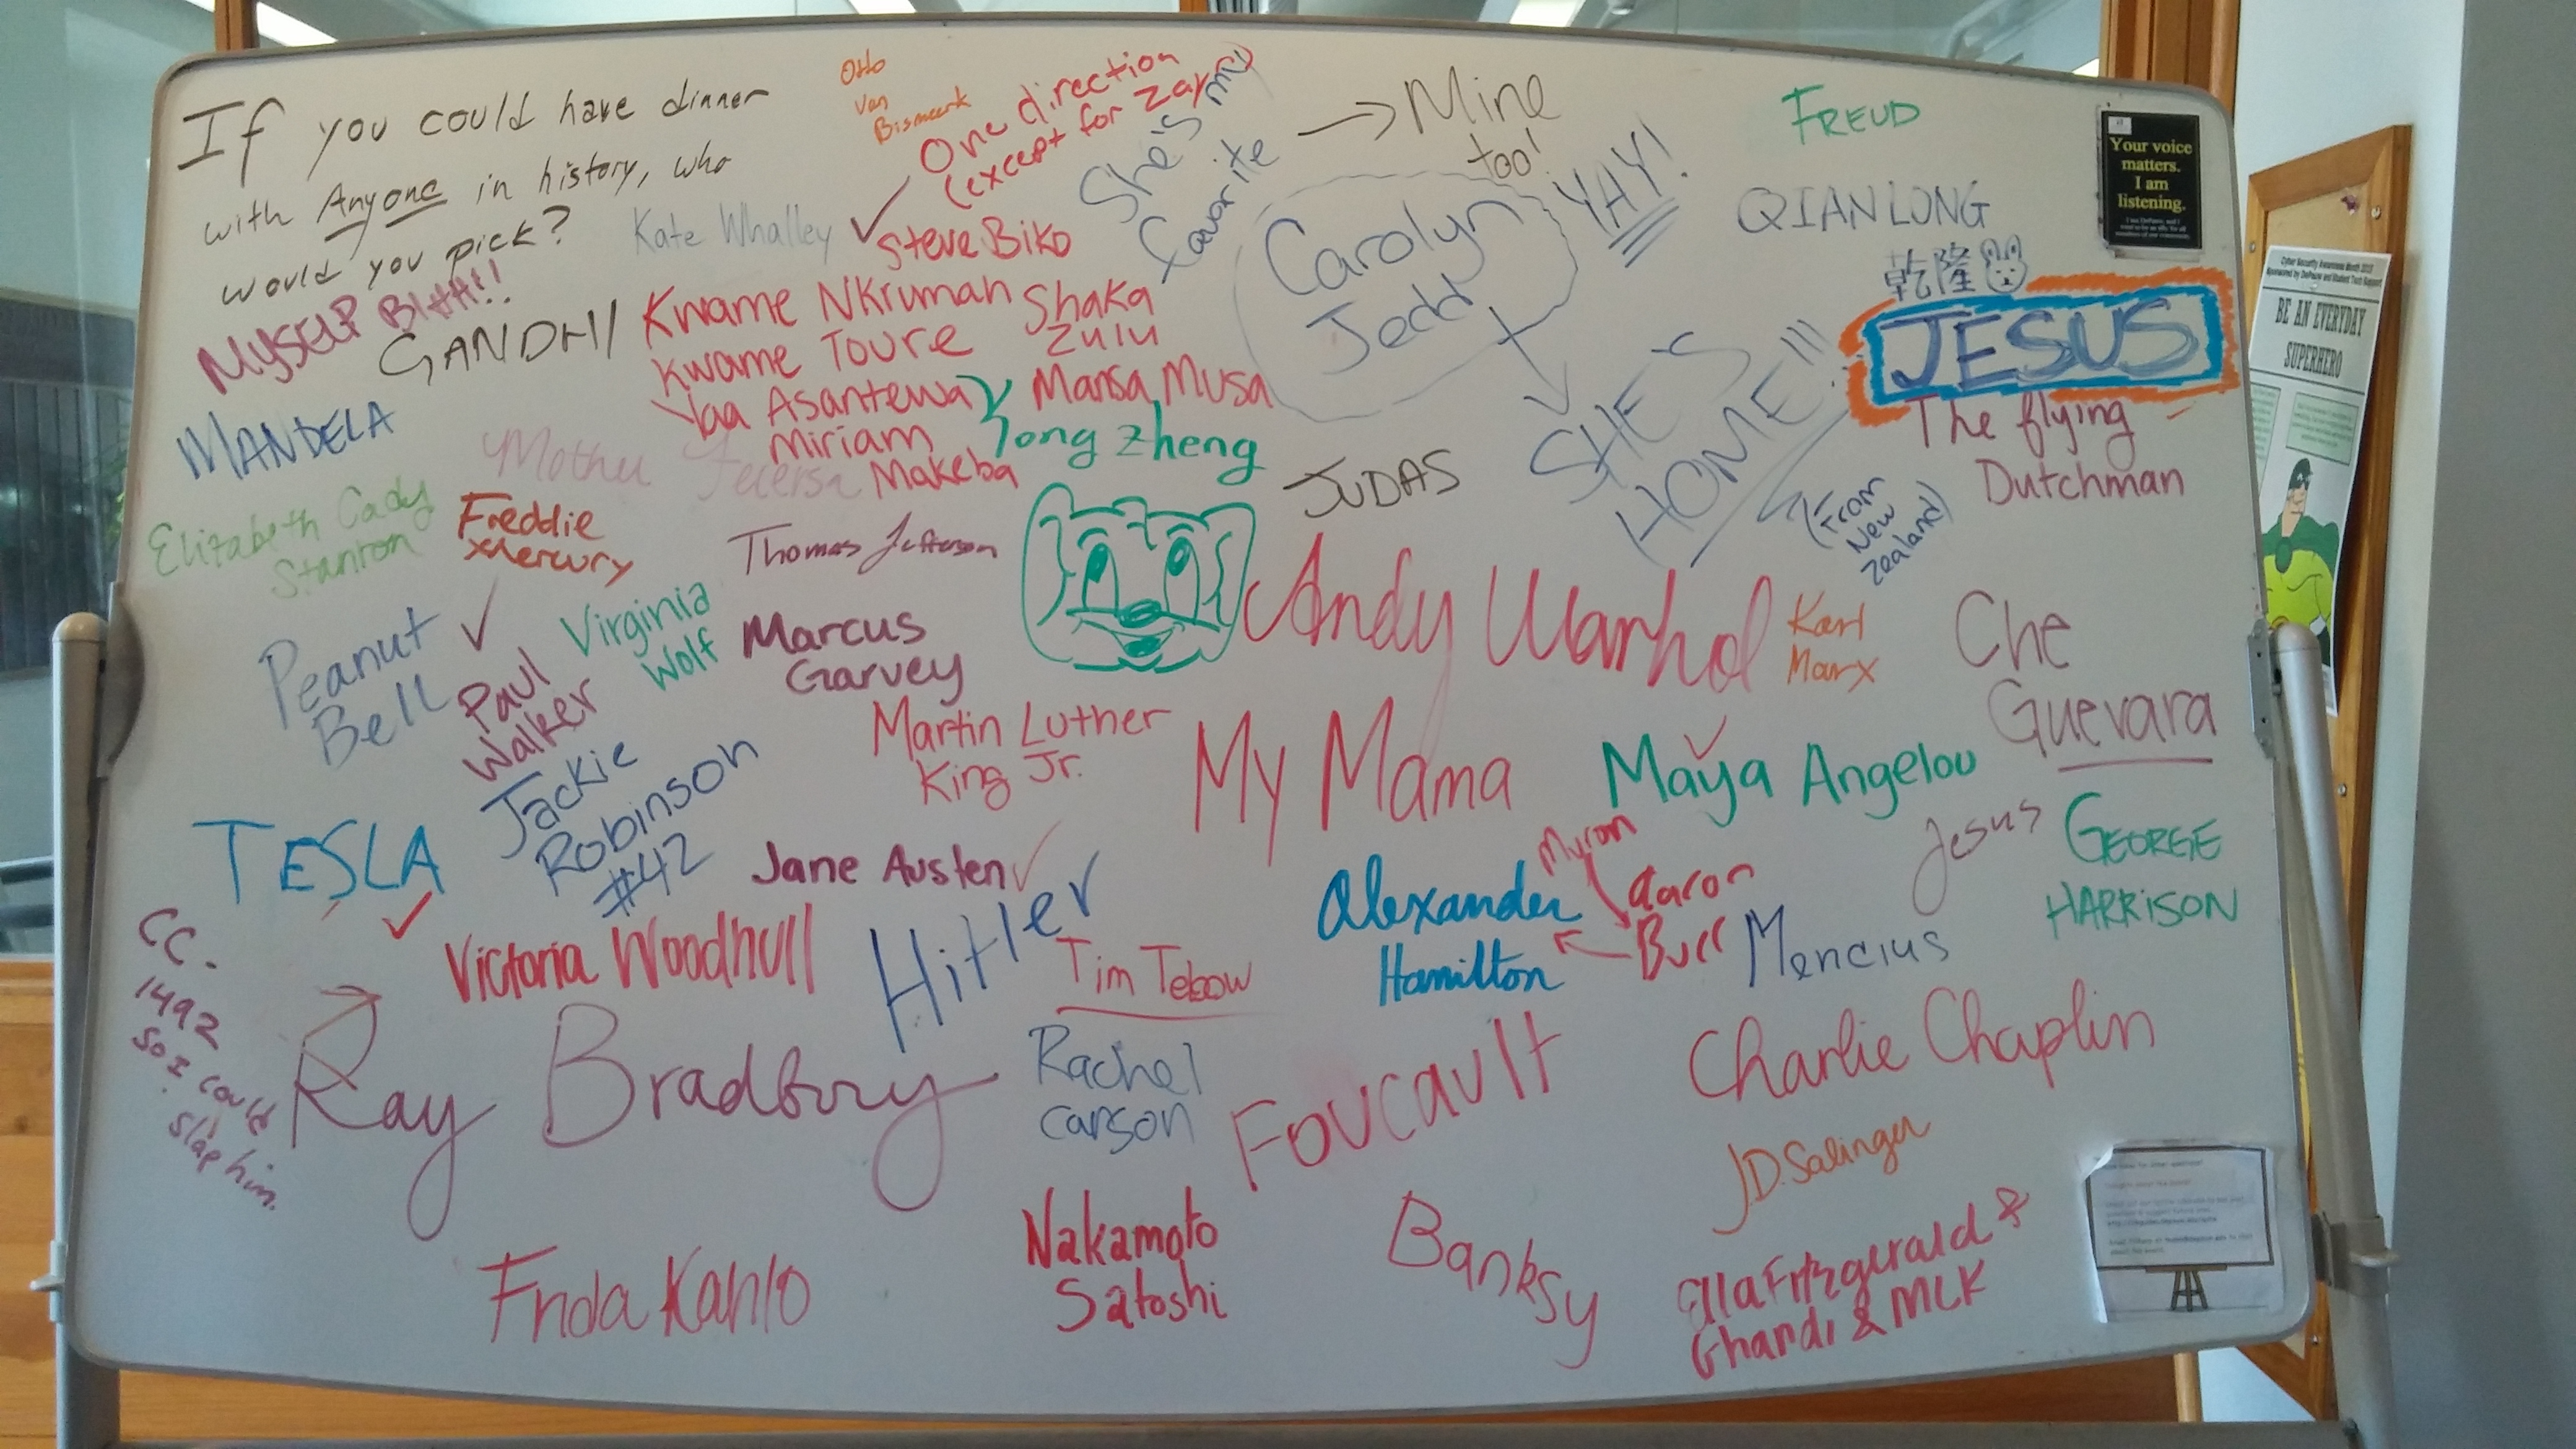 If you could have dinner
with Anyone in history, who
would you pick?
Otto
Van
Bismark
One direction
(except for Zayn)
She's my
favorite
Mine
too!
FREUD
Your voice
matters.
I am
listening.
Kate Whalley
Steve Biko
Carolyn
Jedd
YAY!
QIANLONG
乾隆
MYSELF Bihh!!
GANDHI
Kwame Nkrumah
Shaka
Zulu
Kwame Toure
Yaa Asantewa
Mansa Musa
Miriam
Makeba
Yong Zheng
SHE'S
HOME!!!
(From
New
Zealand)
JESUS
The flying
Dutchman
Cyber Security Awareness Month 2015
BE AN EVERYDAY
SUPERHERO
MANDELA
Mother Teceresa
JUDAS
Elizabeth Cady
Stanton
Freddie
Mercury
Thomas Jefferson
Peanut
Bell
Paul
Walker
Virginia
Wolf
Marcus
Garvey
Andy Warhol
Karl
Marx
Che
Guevara
Martin Luther
King Jr.
My Mama
Maya Angelou
Jackie
Robinson
#42
TESLA
Jane Austen
Hitler
Myron
Alexander
Hamilton
Aaron
Burr
Jesus
GEORGE
HARRISON
Mencius
CC.
1492
So I could
slap him.
Victoria Woodhull
Tim Tebow
Ray Bradbury
Rachel
Carson
Foucault
Charlie Chaplin
J.D. Salinger
Frida Kahlo
Nakamoto
Satoshi
Banksy
Ella Fitzgerald &
Ghandi & MLK